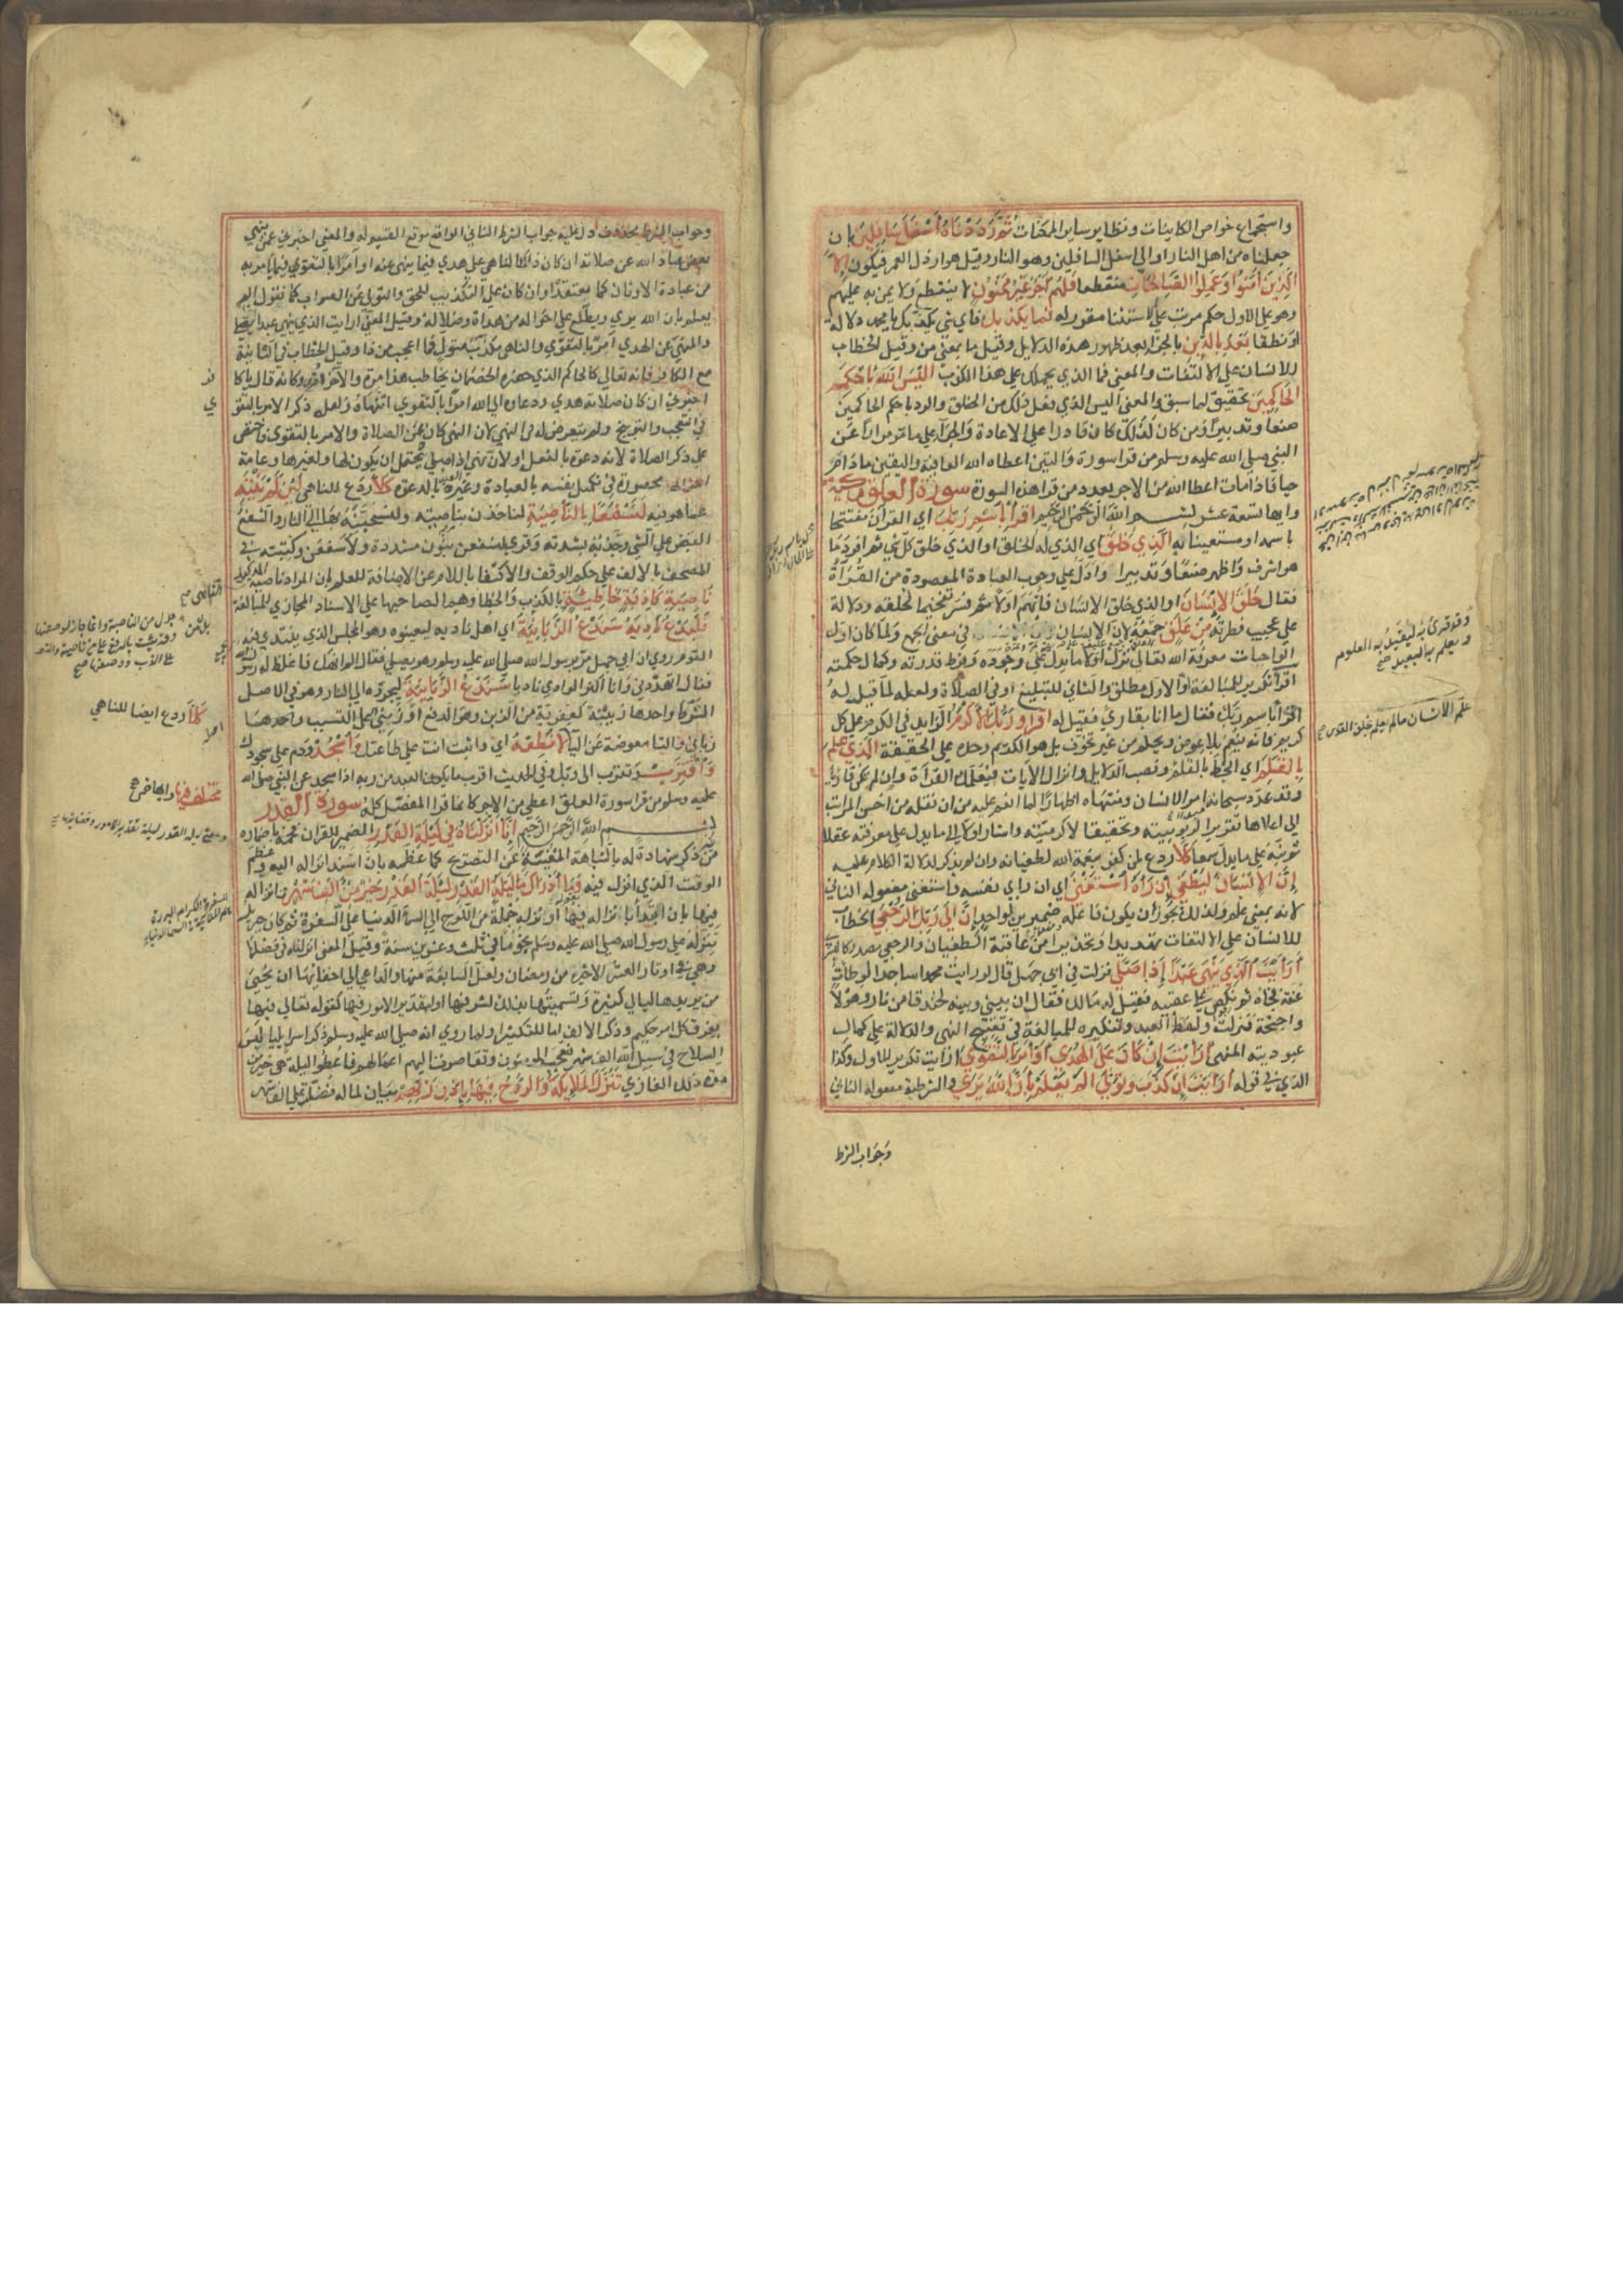 واستجماع خواص الكاينات ونظاير ساير الممكنات ثم رددناه أسفل سافلين بان
جعلناه من اهل النار او الى اسفل السافلين وهو النار وقيل هو ارذل العمر فيكون الا
الذين آمنوا وعملوا الصالحات منقطعا فلهم أجر غير ممنون لا ينقطع ولا يمن به عليهم
وهو على الاول حكم مرتب على الاستثنا مقرر له فما يكذبك فاي شي يكذبك يا محمد دلالة
او نطقا بعد بالدين بالجزا بعد ظهور هذه الدلايل وقيل ما بمعنى من وقيل الخطاب
للانسان على الالتفات والمعنى فما الذي يحملك على هذا الكذب أليس الله بأحكم
الحاكمين تحقيق لما سبق والمعنى اليس الذي فعل ذلك من الخلق والرد باحكم الحاكمين
صنعا وتدبيرا ومن كان كذلك كان قادرا على الاعادة والجزا على ما مر مرارا عن
النبي صلى الله عليه وسلم من قرا سورة والتين اعطاه الله العافية واليقين ما دام
حيا فاذا مات اعطا الله من الاجر بعدد من قرا هذه السورة سورة العلق مكية
وايها تسعة عشر بسم الله الرحمن الرحيم اقرأ باسم ربك اي القرآن مفتتحا
باسمه او مستعينا به الذي خلق اي الذي له الخلق او الذي خلق كل شي ثم افرد ما
هو اشرف واظهر صنعا وتدبيرا وادل على وجوب العبادة المقصودة من القراة
فقال خلق الإنسان او الذي خلق الانسان فابهم اولا ثم فسر تفخيما لخلقه ودلالة
على عجيب فطرته من علق جمعه لان الانسان في معنى الجمع ولما كان اول
الواجبات معرفة الله تعالى نزل اولا ما يدل على وجوده وفرط قدرته وكمال حكمته
اقرأ تكرير للمبالغة او الاول مطلق والثاني للتبليغ او في الصلاة ولعله لما قيل له
اقرأ باسم ربك فقال ما انا بقاري فقيل له اقرأ وربك الأكرم الزايد في الكرم على كل
كريم فانه ينعم بلا عوض ويحلم من غير تخوف بل هو الكريم وحده على الحقيقة الذي علم
بالقلم اي الخط بالقلم ونصب الدلايل وانزال الايات فيعلمك القراة وان لم تكن قاريا
وقد عدد سبحانه امر الانسان ومنتهاه اظهارا لما انعم عليه من ان نقله من اخس المراتب
الى اعلاها تقريرا لربوبيته وتحقيقا لاكرميته واشار اولا الى ما يدل على معرفته عقلا
ثم نبه على ما يدل سمعا كلا ردع لمن كفر بنعمة الله لطغيانه وان لم يذكر لدلالة الكلام عليه
إن الإنسان ليطغى أن رآه استغنى اي ان راي نفسه واستغنى مفعوله الثاني
لانه بمعنى علم ولذلك يجوز ان يكون فاعله ضميرين لواحد إن إلى ربك الرجعى الخطاب
للانسان على الالتفات تهديدا وتحذيرا من عاقبة الطغيان والرجعى مصدر كالبشرى
أرأيت الذي ينهى عبدا إذا صلى نزلت في ابي جهل قال لو رايت محمدا ساجدا لوطات
عنقه فجاه ثم نكص على عقبيه فقيل له مالك فقال ان بيني وبينه لخندقا من نار وهولا
واجنحة فنزلت ولفظ العبد وتنكيره للمبالغة في تقبيح النهي والدلالة على كمال
عبودية المنهي أرأيت إن كان على الهدى أو أمر بالتقوى ارايت تكرير للاول وكذا
الذي في قوله أرأيت إن كذب وتولى ألم يعلم بأن الله يرى والشرطية مفعوله الثاني
وجواب الشرط
وقد قرئ به ليقيد به العلوم
ويعلم به البعيد صح
علم الانسان ما لم يعلم
وجواب الشرط محذوف دل عليه جواب الشرط الثاني الواقع موقع القسيم له والمعنى اخبرني عمن ينهى
بعض عباد الله عن صلاته ان كان ذلك الناهي على هدي فيما ينهى عنه او امرا بالتقوى فيما يامر به
من عبادة الاوثان كما يعتقده او ان كان على التكذيب للحق والتولي عن الصواب كما نقول الم
يعلم بان الله يري ويطلع على احواله من هداه وضلاله وقيل المعنى ارايت الذي ينهى عبدا يصلي
والمنهي عن الهدي امر بالتقوى والناهي مكذب متولي فما اعجب من ذا وقيل الخطاب في الثانية
مع الكافر فانه تعالى كالحاكم الذي حضره الخصمان يخاطب هذا مرة والاخر اخرى وكانه قال يا كا
فر
اخبرني ان كان صلاته هدي ودعاوه الى الله امرا بالتقوى اتنهاه ولعله ذكر الامر بالتقو
ي
في التعجب والتوبيخ ولم يتعرض له في النهي لان النهي كان عن الصلاة والامر بالتقوى فاقتصر
على ذكر الصلاة لانه دعوة بالفعل او لان نهي العبد اذا صلى يحتمل ان يكون لها ولغيرها وعامة
احوالها محصورة في تكميل نفسه بالعبادة وغيره بالدعوة كلا ردع للناهي لئن لم ينته
عما هو فيه لنسفعا بالناصية لناخذن بناصيته ولنسحبنه بها الى النار والسفع
القبض على الشي وجذبه بشدته وقري لنسفعن بنون مشددة ولاسفعن وكتبته في
المصحف بالالف على حكم الوقف والاكتفا باللام عن الاضافة للعلم بان المراد ناصية المذكور
ناصية كاذبة خاطئة بالكذب والخطا وهما لصاحبها على الاسناد المجازي للمبالغة
فليدع ناديه سندع الزبانية اي اهل ناديه ليعينوه وهو المجلس الذي ينتدي فيه
القوم روي ان ابي جهل مر برسول الله صلى الله عليه وسلم وهو يصلي فقال الم انهك فاغلظ له رسول الله
فقال اتهددني وانا اكثر الوادي ناديا سندع الزبانية ليجروه الى النار وهو في الاصل
الشرط واحدها زبنية كعفرية من الزبن وهو الدفع او زبني على النسب واحدها
زباني والتا معوضة عن اليا لا تطعه اي واثبت انت على طاعتك واسجد ودم على سجودك
واقترب وتقرب الى ربك وفي الحديث اقرب ما يكون العبد من ربه اذا سجد عن النبي صلى الله
عليه وسلم من قرا سورة العلق اعطي من الاجر كانما قرا المفصل كله سورة القدر
بسم الله الرحمن الرحيم إنا أنزلناه في ليلة القدر الضمير للقران فخمه باضماره
من غير ذكر شهادة له بالنباهة المغنية عن التصريح كما عظمه بان اسند انزاله اليه وعظم
الوقت الذي انزل فيه وما أدراك ما ليلة القدر ليلة القدر خير من ألف شهر وانزاله
فيها بان ابتدا بانزاله فيها او انزله جملة من اللوح الى السماء الدنيا على السفرة ثم كان جبريل
ينزله على رسول الله صلى الله عليه وسلم نجوما في ثلث وعشرين سنة وقيل المعنى انزلناه في فضلها
وهي في اوتار العشر الاخير من رمضان ولعل السابعة منها والداعي الى اخفائها ان يحيي
من يريدها ليالي كثيرة وتسميتها بذلك لشرفها او لتقدير الامور فيها كقوله تعالى فيها
يفرق كل امر حكيم وذكر الالف اما للتكثير او لما روي انه صلى الله عليه وسلم ذكر اسرايليا لبس
السلاح في سبيل الله الف شهر فعجب المومنون وتقاصرت اليهم اعمالهم فاعطوا ليلة هي خير من
مدة ذلك الغازي تنزل الملائكة والروح فيها بإذن ربهم بيان لما له فضلت على الف شهر
بدل من الناصية وانما جاز لوصفها
كلا ردع ايضا للناهي